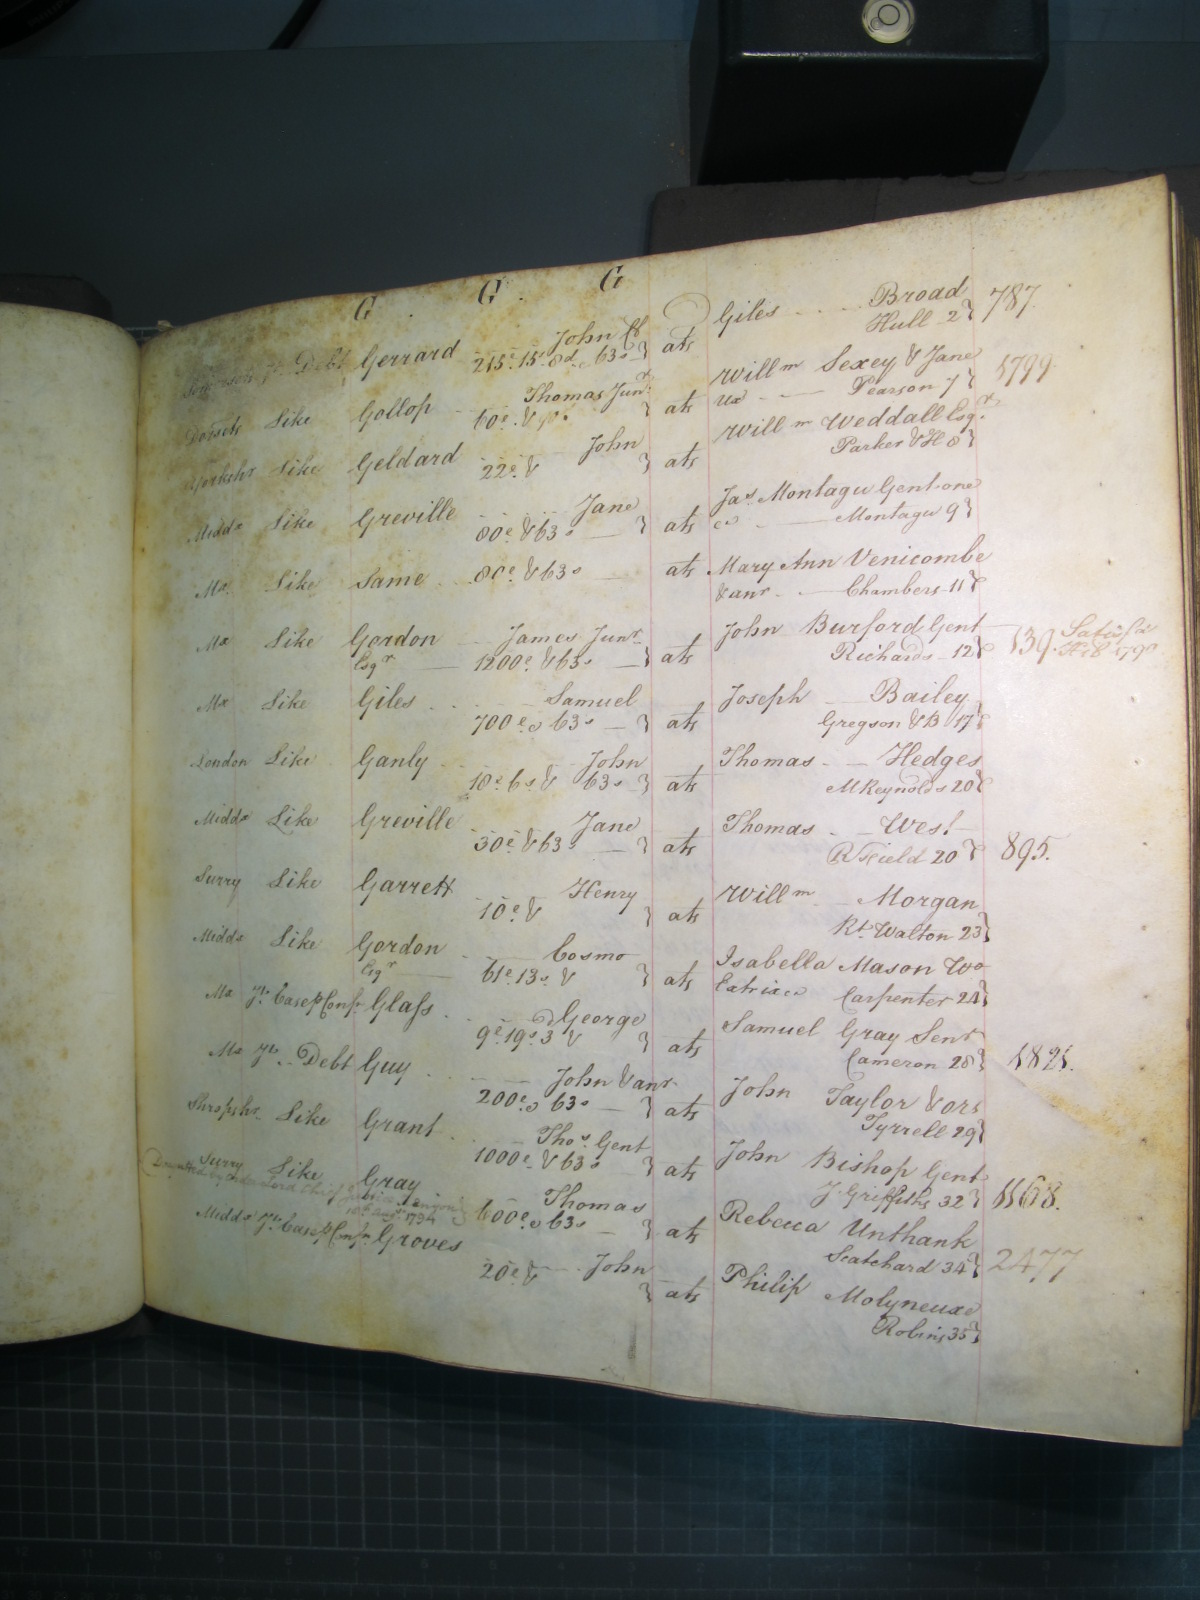 G. G. G
Debt Gerrard John Clk ats Giles Broad 787.
215£.15s.8d. 63s Hull 2
Dorsets Like Gollop Thomas Junr ats Willm Sexey & Jane 1799
60£. & Ux Pearson 7
Yorkshr Like Geldard John ats Willm Weddall Esqr.
22£ & Parker & H 8
Middx Like Greville Jane ats Jas. Montagu Gent one
80£ & 63s &c Montagu 9
Mx Like Same 80£. & 63s ats Mary Ann Venicombe
& anr. Chambers 11
Mx Like Gordon James Junr ats John Burford Gent 139. Satisfd
Esqr 1200£ & 63s Richards 12 1790
Mx Like Giles Samuel ats Joseph Bailey
700£ & 63s Gregson & B 17
London Like Ganly John ats Thomas Hedges
18£ 6s & 63s McReynolds 20
Middx Like Greville Jane ats Thomas West 895.
30£ & 63s Rd Field 20
Surry Like Garrett Henry ats Willm Morgan
10£ & Rt. Walton 23
Middx Like Gordon Cosmo ats Isabella Mason Wo
Esqr 61£.13s & Extrix Carpenter 24
Mx Tr. Case p Confn Glass George ats Samuel Gray Senr 1821.
9£ 19s 3d & Cameron 28
Mx Tr. Debt Guy John & anr. ats John Taylor & ors
200£ & 63s Tyrrell 29
Shropshr. Like Grant Thos. Gent ats John Bishop Gent 1168.
1000£ & 63s J. Griffiths 32
Surry Like Gray Thomas ats Rebecca Unthank 2477
by Order Lord Chief Justice Kenyon 600£ & 63s Scatchard 34
Augt 1794
Middx Tr. Case p Confn Groves John ats Philip Molyneux
20£ & Robins 35